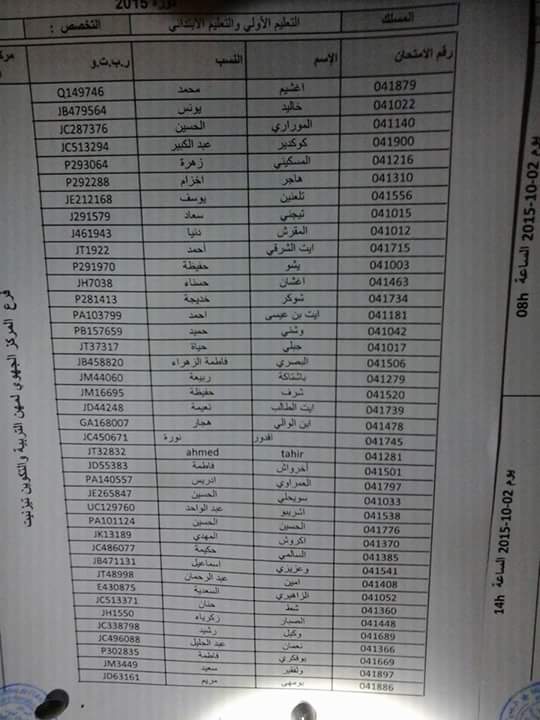 دورة 2015
المسلك التعليم الأولي والتعليم الابتدائي التخصص :
رقم الامتحان الإسم النسب ر.ب.ت.و
041879 اغشيم محمد Q149746
041022 خاليد يونس JB479564
041140 الموراري الحسين JC287376
041900 كوكدير عبد الكبير JC513294
041216 المسكيني زهرة P293064
041310 هاجر اخزام P292288
041556 تلعنين يوسف JE212168
041015 تيجني سعاد J291579
041012 المقرش دنيا J461943
041715 ايت الشرقي أحمد JT1922
041003 يشو حفيظة P291970
041463 اغشان حسناء JH7038
041734 شوكر خديجة P281413
041181 ايت بن عيسى احمد PA103799
041042 وشني حميد PB157659
041017 جبلي حياة JT37317
041506 البصري فاطمة الزهراء JB458820
041279 باشتاكة ربيعة JM44060
041520 شرف حفيظة JM16695
041739 ايت الطالب نعيمة JD44248
041478 ابن الوالي هجار GA168007
041745 اقدور نورة JC450671
041281 tahir ahmed JT32832
041501 أخرواش فاطمة JD55383
041797 الحمراوي ادريس PA140557
041033 سويحلي الحسين JE265847
041538 اشريبو عبد الواحد UC129760
041776 الحسين الحسين PA101124
041370 اكروش المهدي JK13189
041385 السالمي حكيمة JC486077
041541 وعزيزي اسماعيل JB471131
041408 امين عبد الرحمان JT48998
041052 الزاهيري السعدية E430875
041360 شط حنان JC513371
041448 الصبار زكرياء JH1550
041689 وكيل رشيد JC338798
041366 نعمان عبد الجليل JC496088
041669 بوفكري فاطمة P302835
041897 ولفقير سعيد JM3449
041886 بومهى مريم JD63161
يوم 02-10-2015 الساعة 08h
يوم 02-10-2015 الساعة 14h
فرع المركز الجهوي لمهن التربية والتكوين تيزنيت